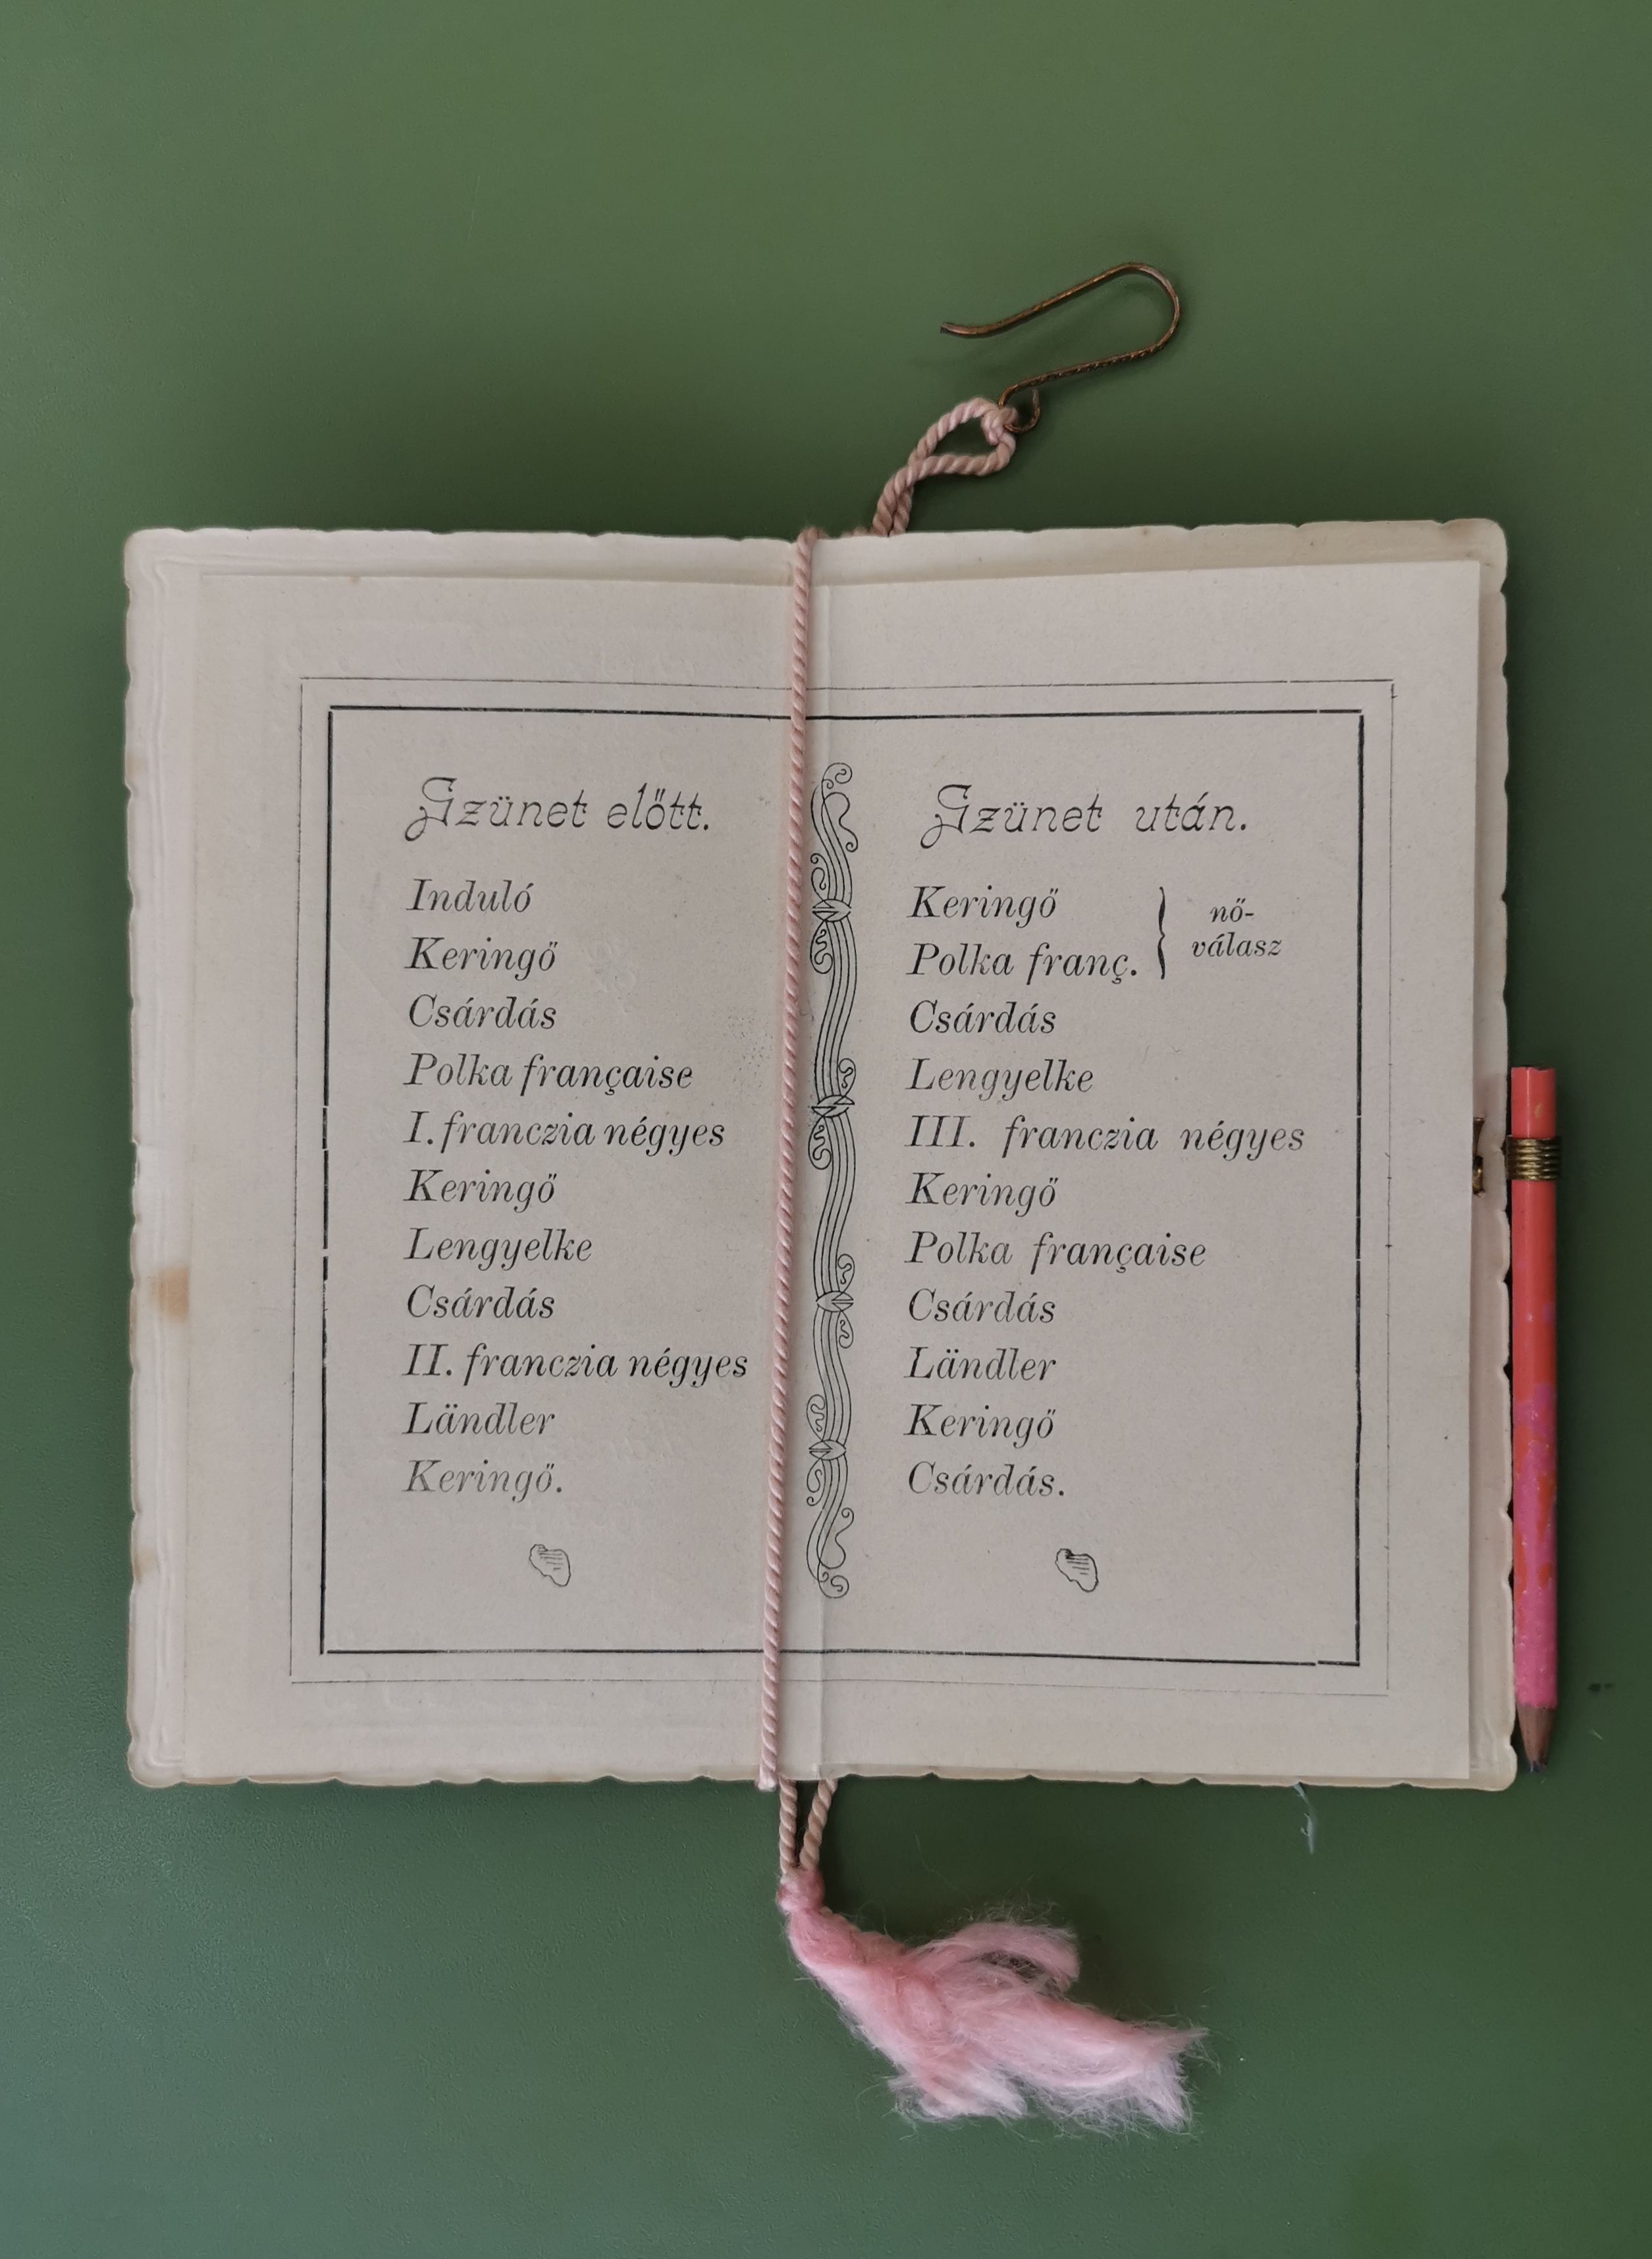 Szünet előtt.
Induló
Keringő
Csárdás
Polka française
I. franczia négyes
Keringő
Lengyelke
Csárdás
II. franczia négyes
Ländler
Keringő.
Szünet után.
Keringő
Polka franç.
nő-
válasz
Csárdás
Lengyelke
III. franczia négyes
Keringő
Polka française
Csárdás
Ländler
Keringő
Csárdás.